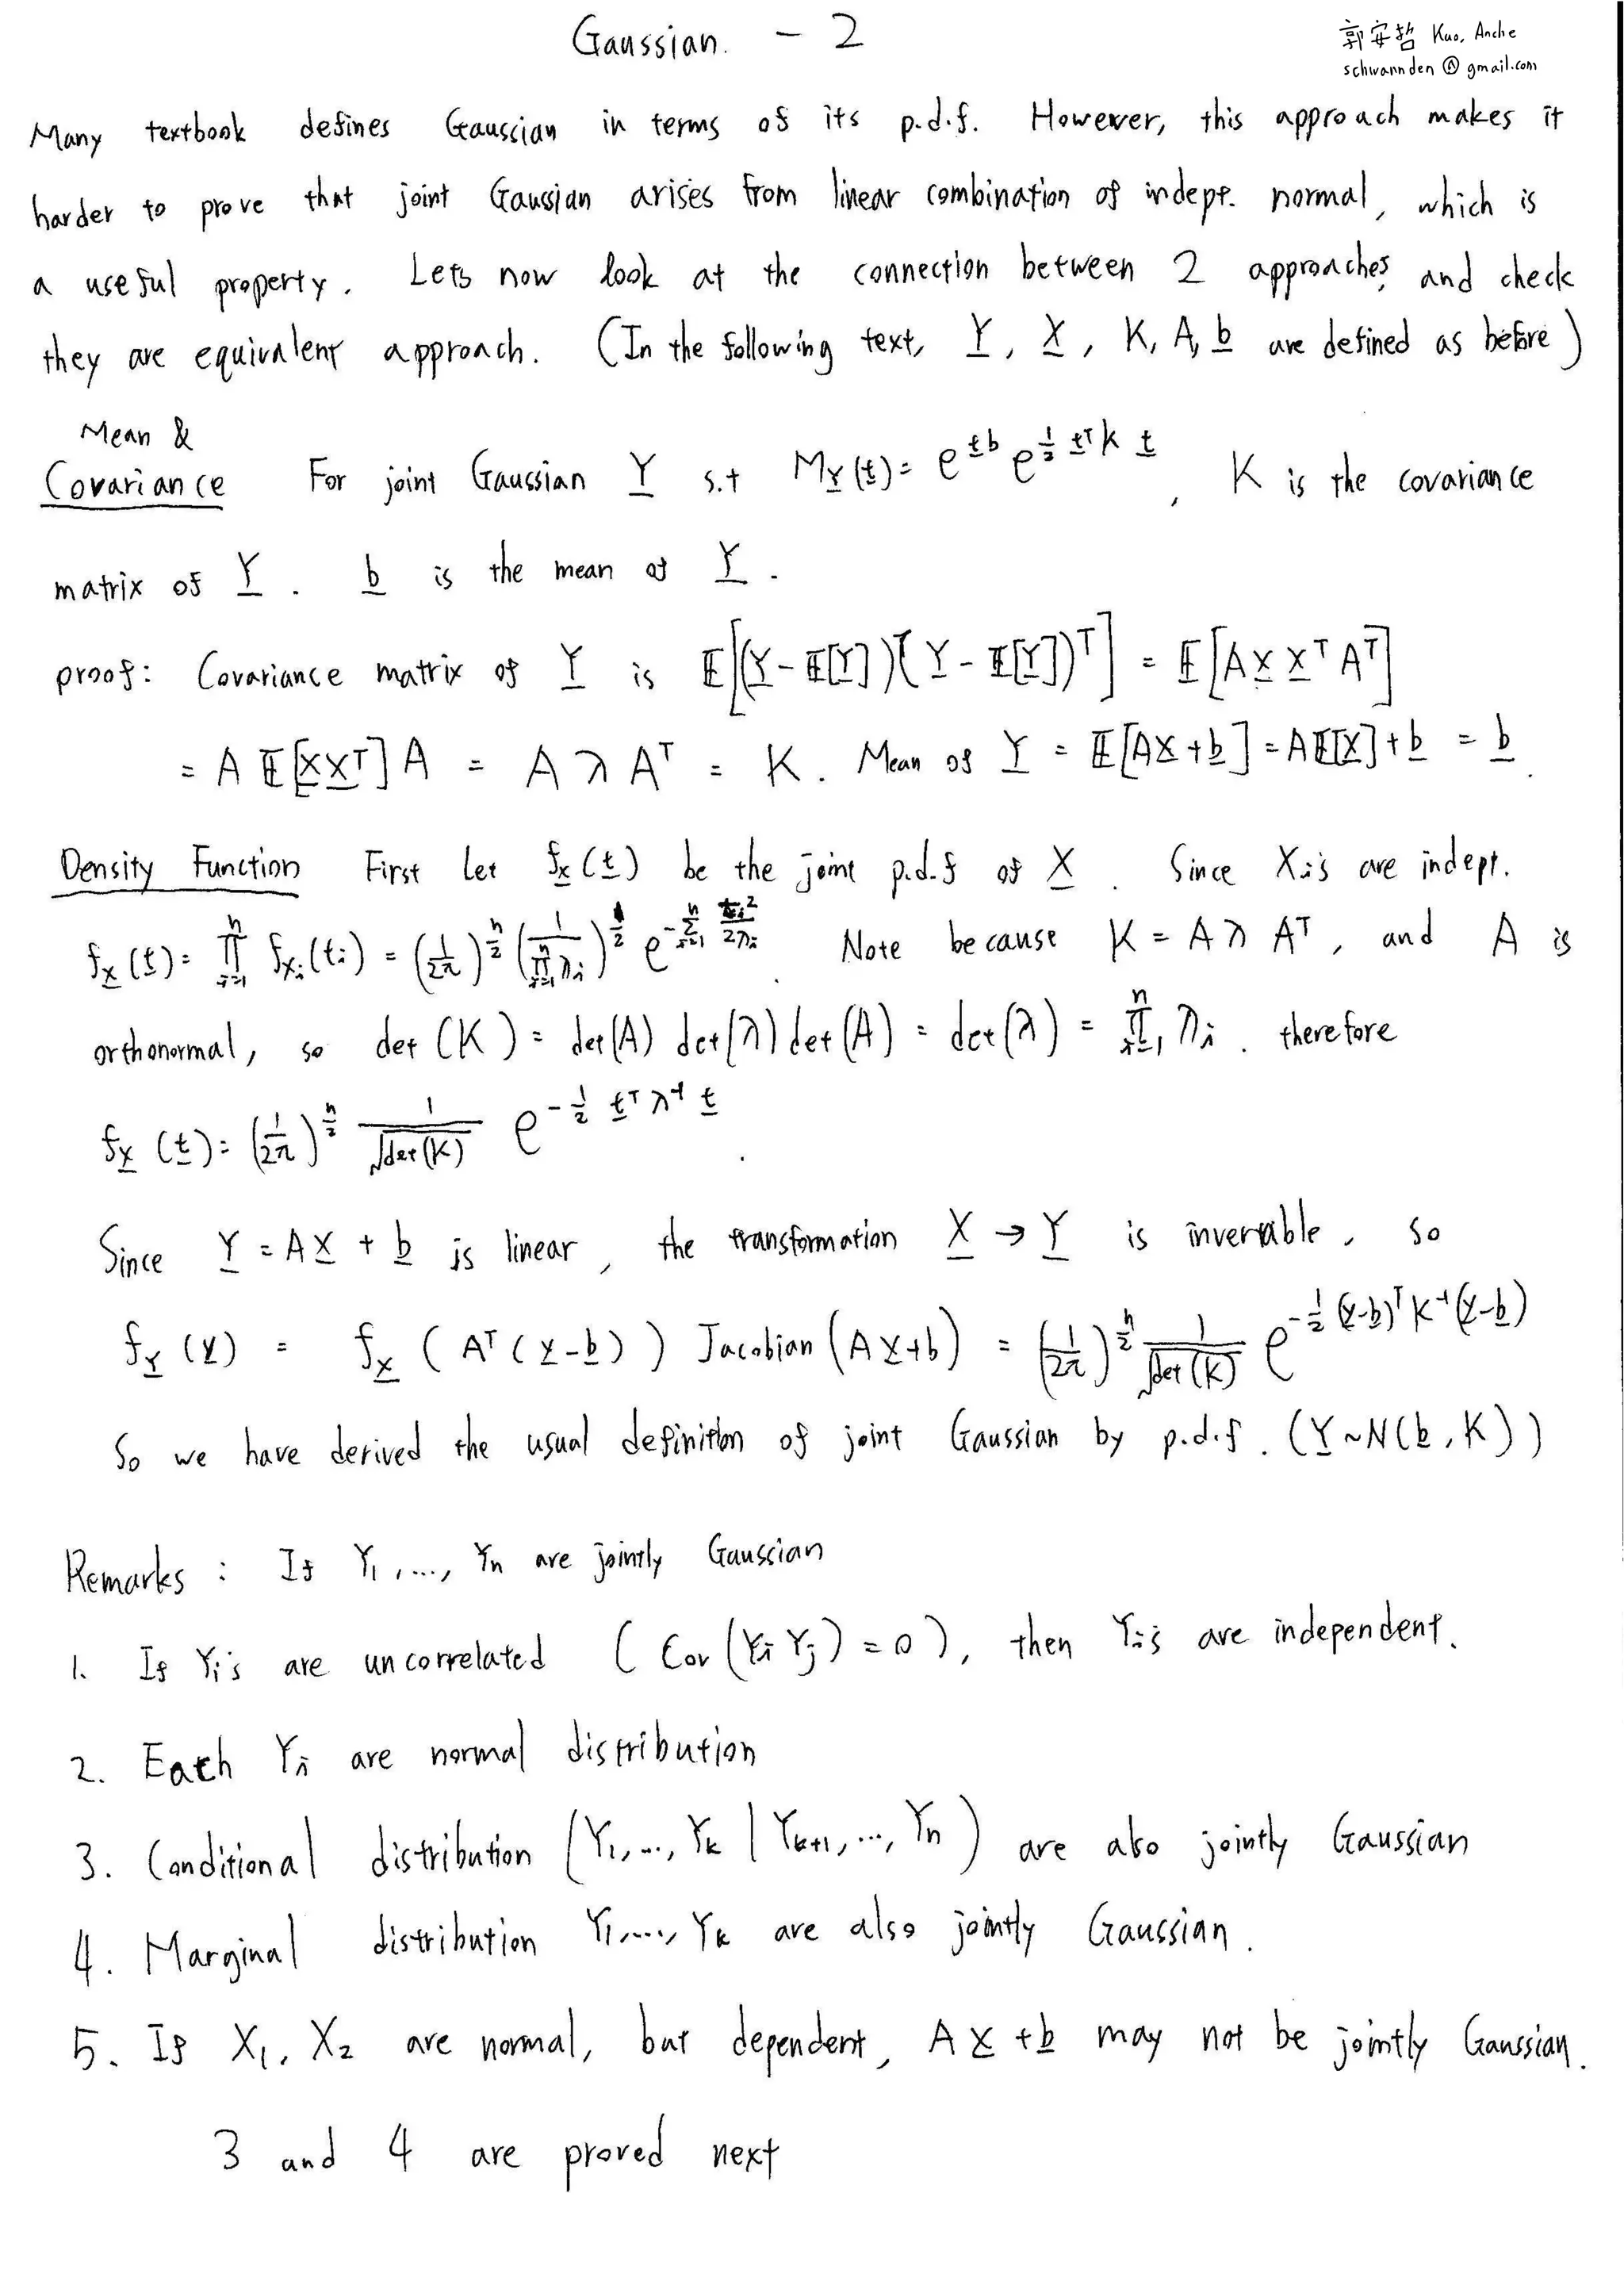 Gaussian. - 2
郭安哲 Kuo, Anche
schwannden @ gmail.com
Many textbook defines Gaussian in terms of its p.d.f. However, this approach makes it
harder to prove that joint Gaussian arises from linear combination of indept. normal, which is
a useful property. Lets now look at the connection between 2 approaches, and check
they are equivalent approach. (In the following text, Y, X, K, A, b are defined as before)
Mean &
Covariance For joint Gaussian Y s.t M_Y(t) = e^{tb} e^{½ t^T K t}, K is the covariance
matrix of Y. b is the mean of Y.
proof: Covariance matrix of Y is E[(Y-E[Y])(Y-E[Y])^T] = E[AXX^TA^T]
= A E[XX^T] A = A λ A^T = K. Mean of Y = E[AX+b] = AE[X]+b = b.
Density Function First Let f_X(t) be the joint p.d.f of X. Since Xi's are indept.
f_X(t) = ∏_{i=1}^n f_{Xi}(ti) = (1/2π)^{n/2} (1/∏_{i=1}^n λi)^{1/2} e^{-∑_{i=1}^n ti²/2λi}. Note because K = A λ A^T, and A is
orthonormal, so det(K) = det(A) det(λ) det(A) = det(λ) = ∏_{i=1}^n λi. therefore
f_X(t) = (1/2π)^{n/2} 1/√det(K) e^{-½ t^T λ^{-1} t}.
Since Y = AX + b is linear, the transformation X → Y is invertable, so
f_Y(y) = f_X(A^T(y-b)) Jacobian(Ax+b) = (1/2π)^{n/2} 1/√det(K) e^{-½ (y-b)^T K^{-1} (y-b)}
So we have derived the usual definition of joint Gaussian by p.d.f. (Y~N(b, K))
Remarks: If Y1, ..., Yn are jointly Gaussian
1. If Yi's are uncorrelated (Cov(Yi Yj) = 0), then Yi's are independent.
2. Each Yi are normal distribution
3. Conditional distribution (Y1, ..., Yk | Yk+1, ..., Yn) are also jointly Gaussian
4. Marginal distribution Y1, ..., Yk are also jointly Gaussian.
5. If X1, X2 are normal, but dependent, AX+b may not be jointly Gaussian.
3 and 4 are proved next